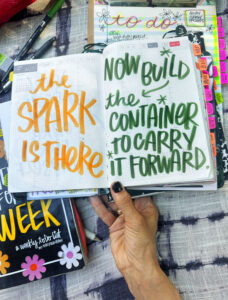 to do
the
SPARK
IS THERE
NOW BUILD
the
CONTAINER
TO CARRY
IT FORWARD.
WEEK
a weekly to-do list